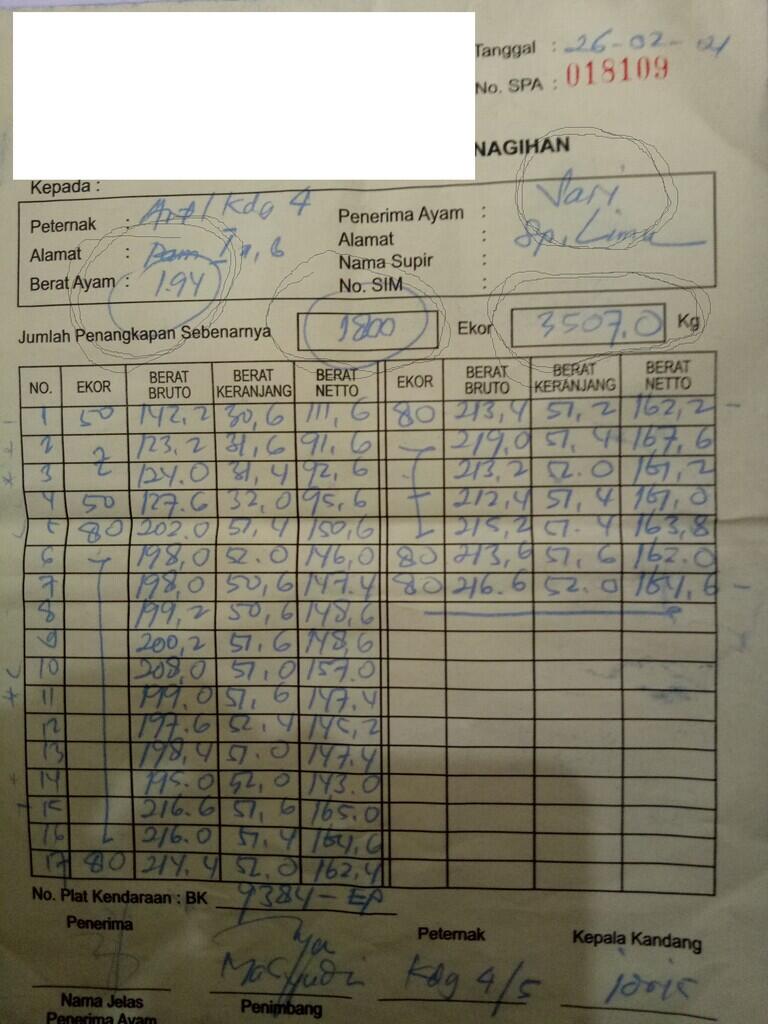 Tanggal : 26-02-21
No. SPA : 018109
NAGIHAN
Kepada :
Peternak : Kdg 4 Penerima Ayam : Sari
Alamat : Alamat : Sp, Lima
Nama Supir :
Berat Ayam : 1.94 No. SIM :
Jumlah Penangkapan Sebenarnya 1800 Ekor 3507,0 Kg
NO. EKOR BERAT BRUTO BERAT KERANJANG BERAT NETTO EKOR BERAT BRUTO BERAT KERANJANG BERAT NETTO
1 50 142,2 30,6 111,6 80 213,4 51,2 162,2 -
2 123,2 31,6 91,6 219,0 51,4 167,6
3 124.0 31,4 92,6 213,2 52.0 161,2
4 50 127.6 32,0 95,6 212,4 51,4 161,0
5 80 202.0 51,4 150,6 215,2 51.4 163,8
6 198,0 52.0 146,0 80 213,6 51,6 162.0
7 198,0 50,6 147.4 80 216.6 52.0 164,6 -
8 199,2 50,6 148,6
9 200,2 51,6 148,6
10 208,0 51,0 157.0
11 199.0 51,6 147.4
12 197.6 52,4 145,2
13 198,4 51.0 147.4
14 195.0 52,0 143.0
15 216.6 51,6 165.0
16 216.0 51.4 164,6
17 80 214.4 52.0 162,4
No. Plat Kendaraan : BK 9384-EP
Penerima Peternak Kepala Kandang
Kdg 4/5
Nama Jelas Penimbang
Penerima Ayam